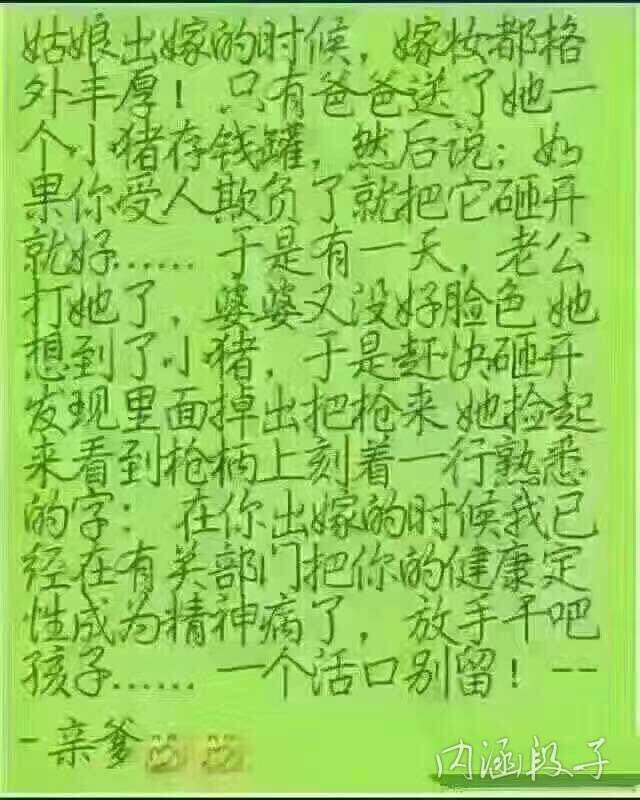 姑娘出嫁的时候，嫁妆都格
外丰厚！只有爸爸送了她一
个小猪存钱罐，然后说；如
果你受人欺负了就把它砸开
就好…… 于是有一天，老公
打她了，婆婆又没好脸色她
想到了小猪，于是赶决砸开
发现里面掉出把枪来她捡起
来看到枪柄上刻着一行熟悉
的字：在你出嫁的时候我已
经在有关部门把你的健康定
性成为精神病了，放手干吧
孩子…… 一个活口别留！--
-亲爹
内涵段子